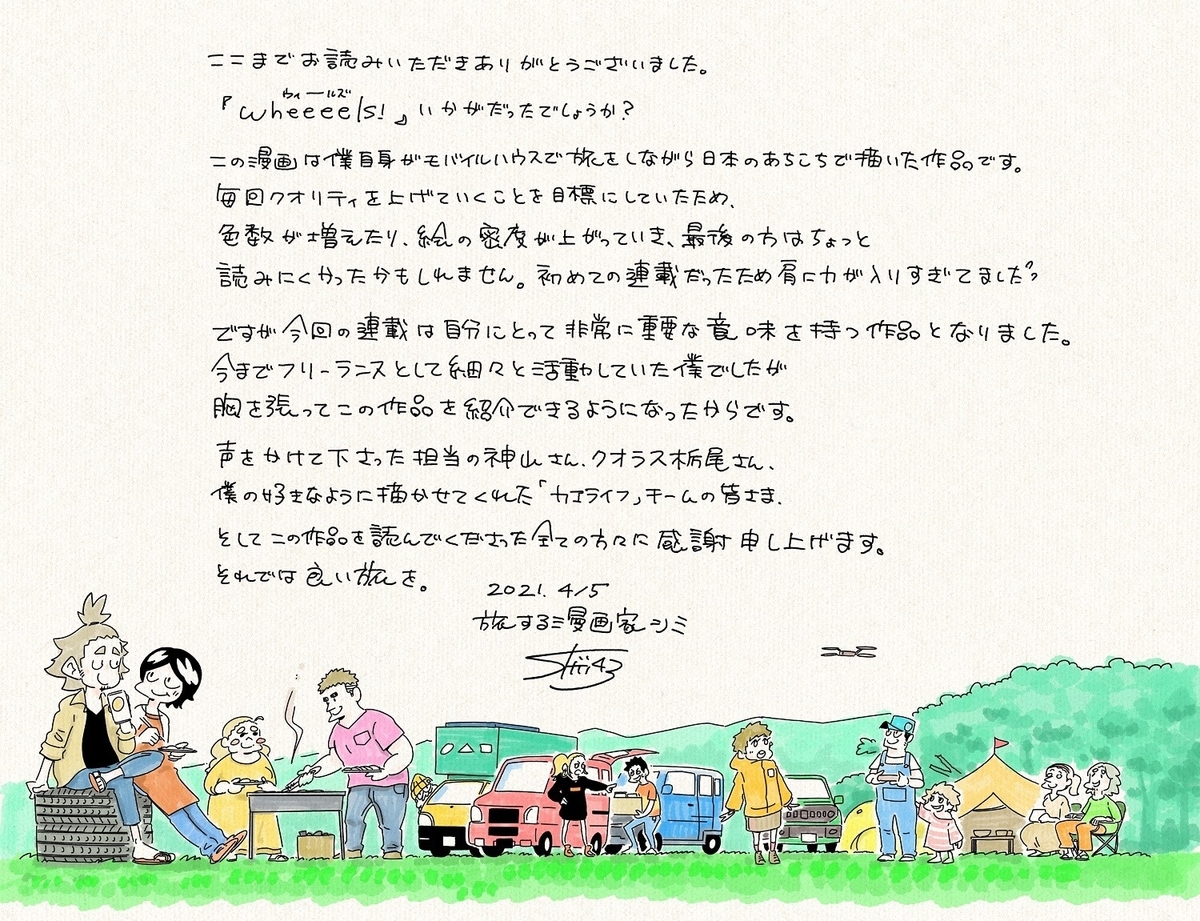 ここまでお読みいただきありがとうございました。
ウィールズ
『wheeeels!』いかがだったでしょうか?
この漫画は僕自身がモバイルハウスで旅をしながら日本のあちこちで描いた作品です。
毎回クオリティを上げていくことを目標にしていたため、
色数が増えたり、絵の密度が上がっていき、最後の方はちょっと
読みにくかったかもしれません。初めての連載だったため肩に力が入りすぎてました
ですが今回の連載は自分にとって非常に重要な意味を持つ作品となりました。
今までフリーランスとして細々と活動していた僕でしたが
胸を張ってこの作品を紹介できるようになったからです。
声をかけて下さった担当の神山さん、クオラス栃尾さん、
僕の好きなように描かせてくれた「カエライフ」チームの皆さま、
そしてこの作品を読んでくださった全ての方々に感謝申し上げます。
それでは良い旅を。
2021. 4/5
旅する漫画家シミ